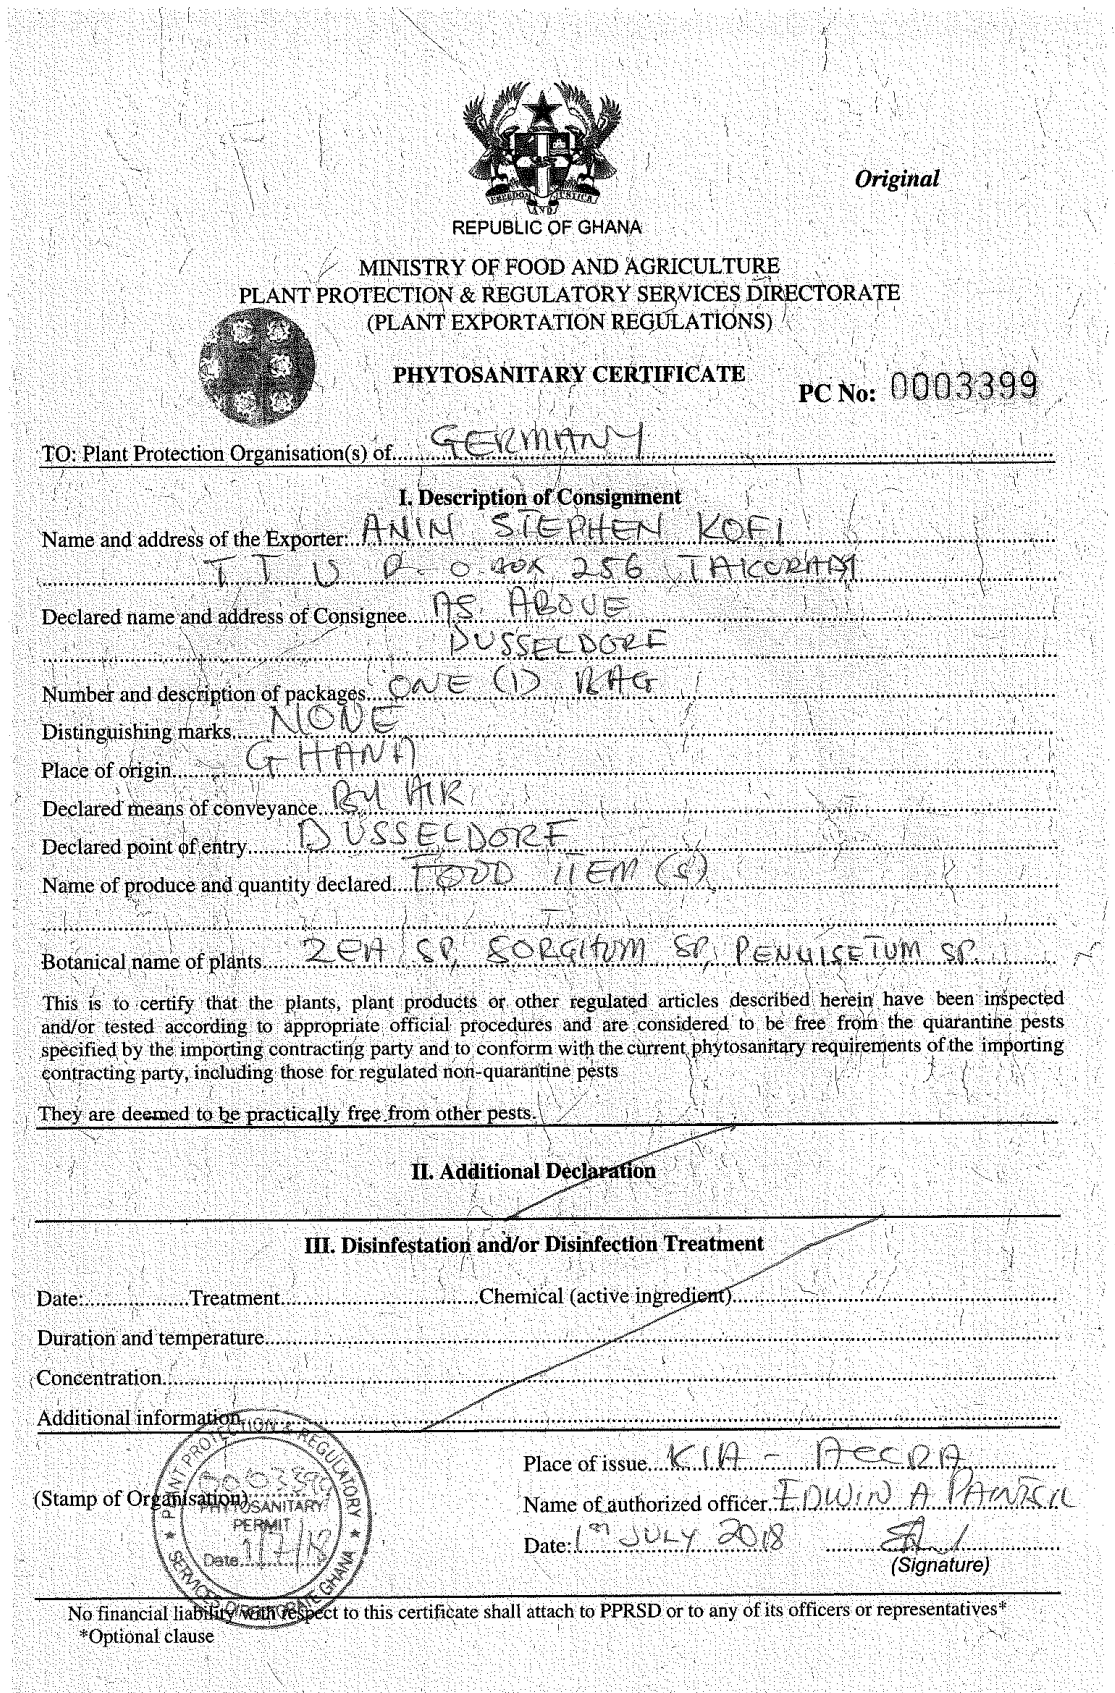 FREEDOM AND JUSTICE
REPUBLIC OF GHANA
Original
MINISTRY OF FOOD AND AGRICULTURE
PLANT PROTECTION & REGULATORY SERVICES DIRECTORATE
(PLANT EXPORTATION REGULATIONS)
PHYTOSANITARY CERTIFICATE
PC No: 0003399
TO: Plant Protection Organisation(s) of GERMANY
I. Description of Consignment
Name and address of the Exporter: ANIN STEPHEN KOFI
T T U P. O. BOX 256 TAKORADI
Declared name and address of Consignee AS ABOVE
DUSSELDORF
Number and description of packages ONE (1) BAG
Distinguishing marks NONE
Place of origin GHANA
Declared means of conveyance BY AIR
Declared point of entry DUSSELDORF
Name of produce and quantity declared FOOD ITEM (S)
Botanical name of plants ZEA SP, SORGHUM SP, PENNISETUM SP.
This is to certify that the plants, plant products or other regulated articles described herein have been inspected
and/or tested according to appropriate official procedures and are considered to be free from the quarantine pests
specified by the importing contracting party and to conform with the current phytosanitary requirements of the importing
contracting party, including those for regulated non-quarantine pests
They are deemed to be practically free from other pests.
II. Additional Declaration
III. Disinfestation and/or Disinfection Treatment
Date: Treatment Chemical (active ingredient)
Duration and temperature
Concentration
Additional information
Place of issue KIA - ACCRA
(Stamp of Organisation)
Name of authorized officer EDWIN A PAINTSIL
Date: 1st JULY 2018
(Signature)
PLANT PROTECTION & REGULATORY
SERVICES DIRECTORATE GHANA
0003399
PHYTOSANITARY
PERMIT
Date 1/7/18
No financial liability with respect to this certificate shall attach to PPRSD or to any of its officers or representatives*
*Optional clause